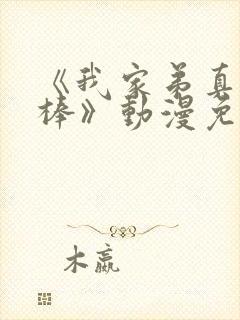 《我家弟真
棒》動漫免
木嬴